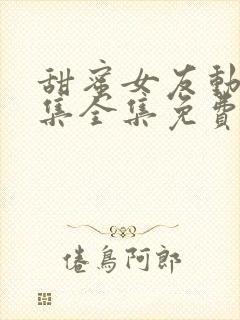 甜蜜女友動
集全集免費
倦鳥阿郎